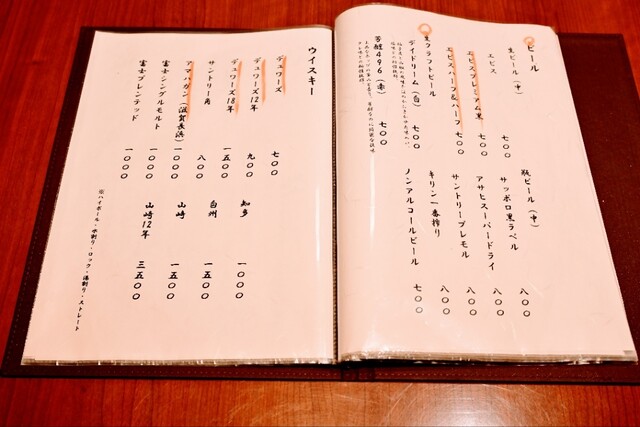 ビール
生ビール(中)
エビス 七〇〇
エビスプレミアム黒 七〇〇
エビスハーフ&ハーフ 七〇〇
生クラフトビール
デイドリーム(白) 七〇〇
芳醇496(赤) 七〇〇
瓶ビール(中)
サッポロ黒ラベル 八〇〇
アサヒスーパードライ 八〇〇
サントリープレモル 八〇〇
キリン一番搾り 八〇〇
ノンアルコールビール 七〇〇
ウイスキー
デュワーズ 七〇〇
デュワーズ12年 九〇〇
デュワーズ18年 一五〇〇
サントリー角 八〇〇
アマハガン(滋賀長浜) 一〇〇〇
富士シングルモルト 一〇〇〇
富士ブレンテッド 一〇〇〇
知多 一〇〇〇
白州 一五〇〇
山崎 一五〇〇
山崎12年 三五〇〇
※ハイボール・水割り・ロック・湯割り・ストレート